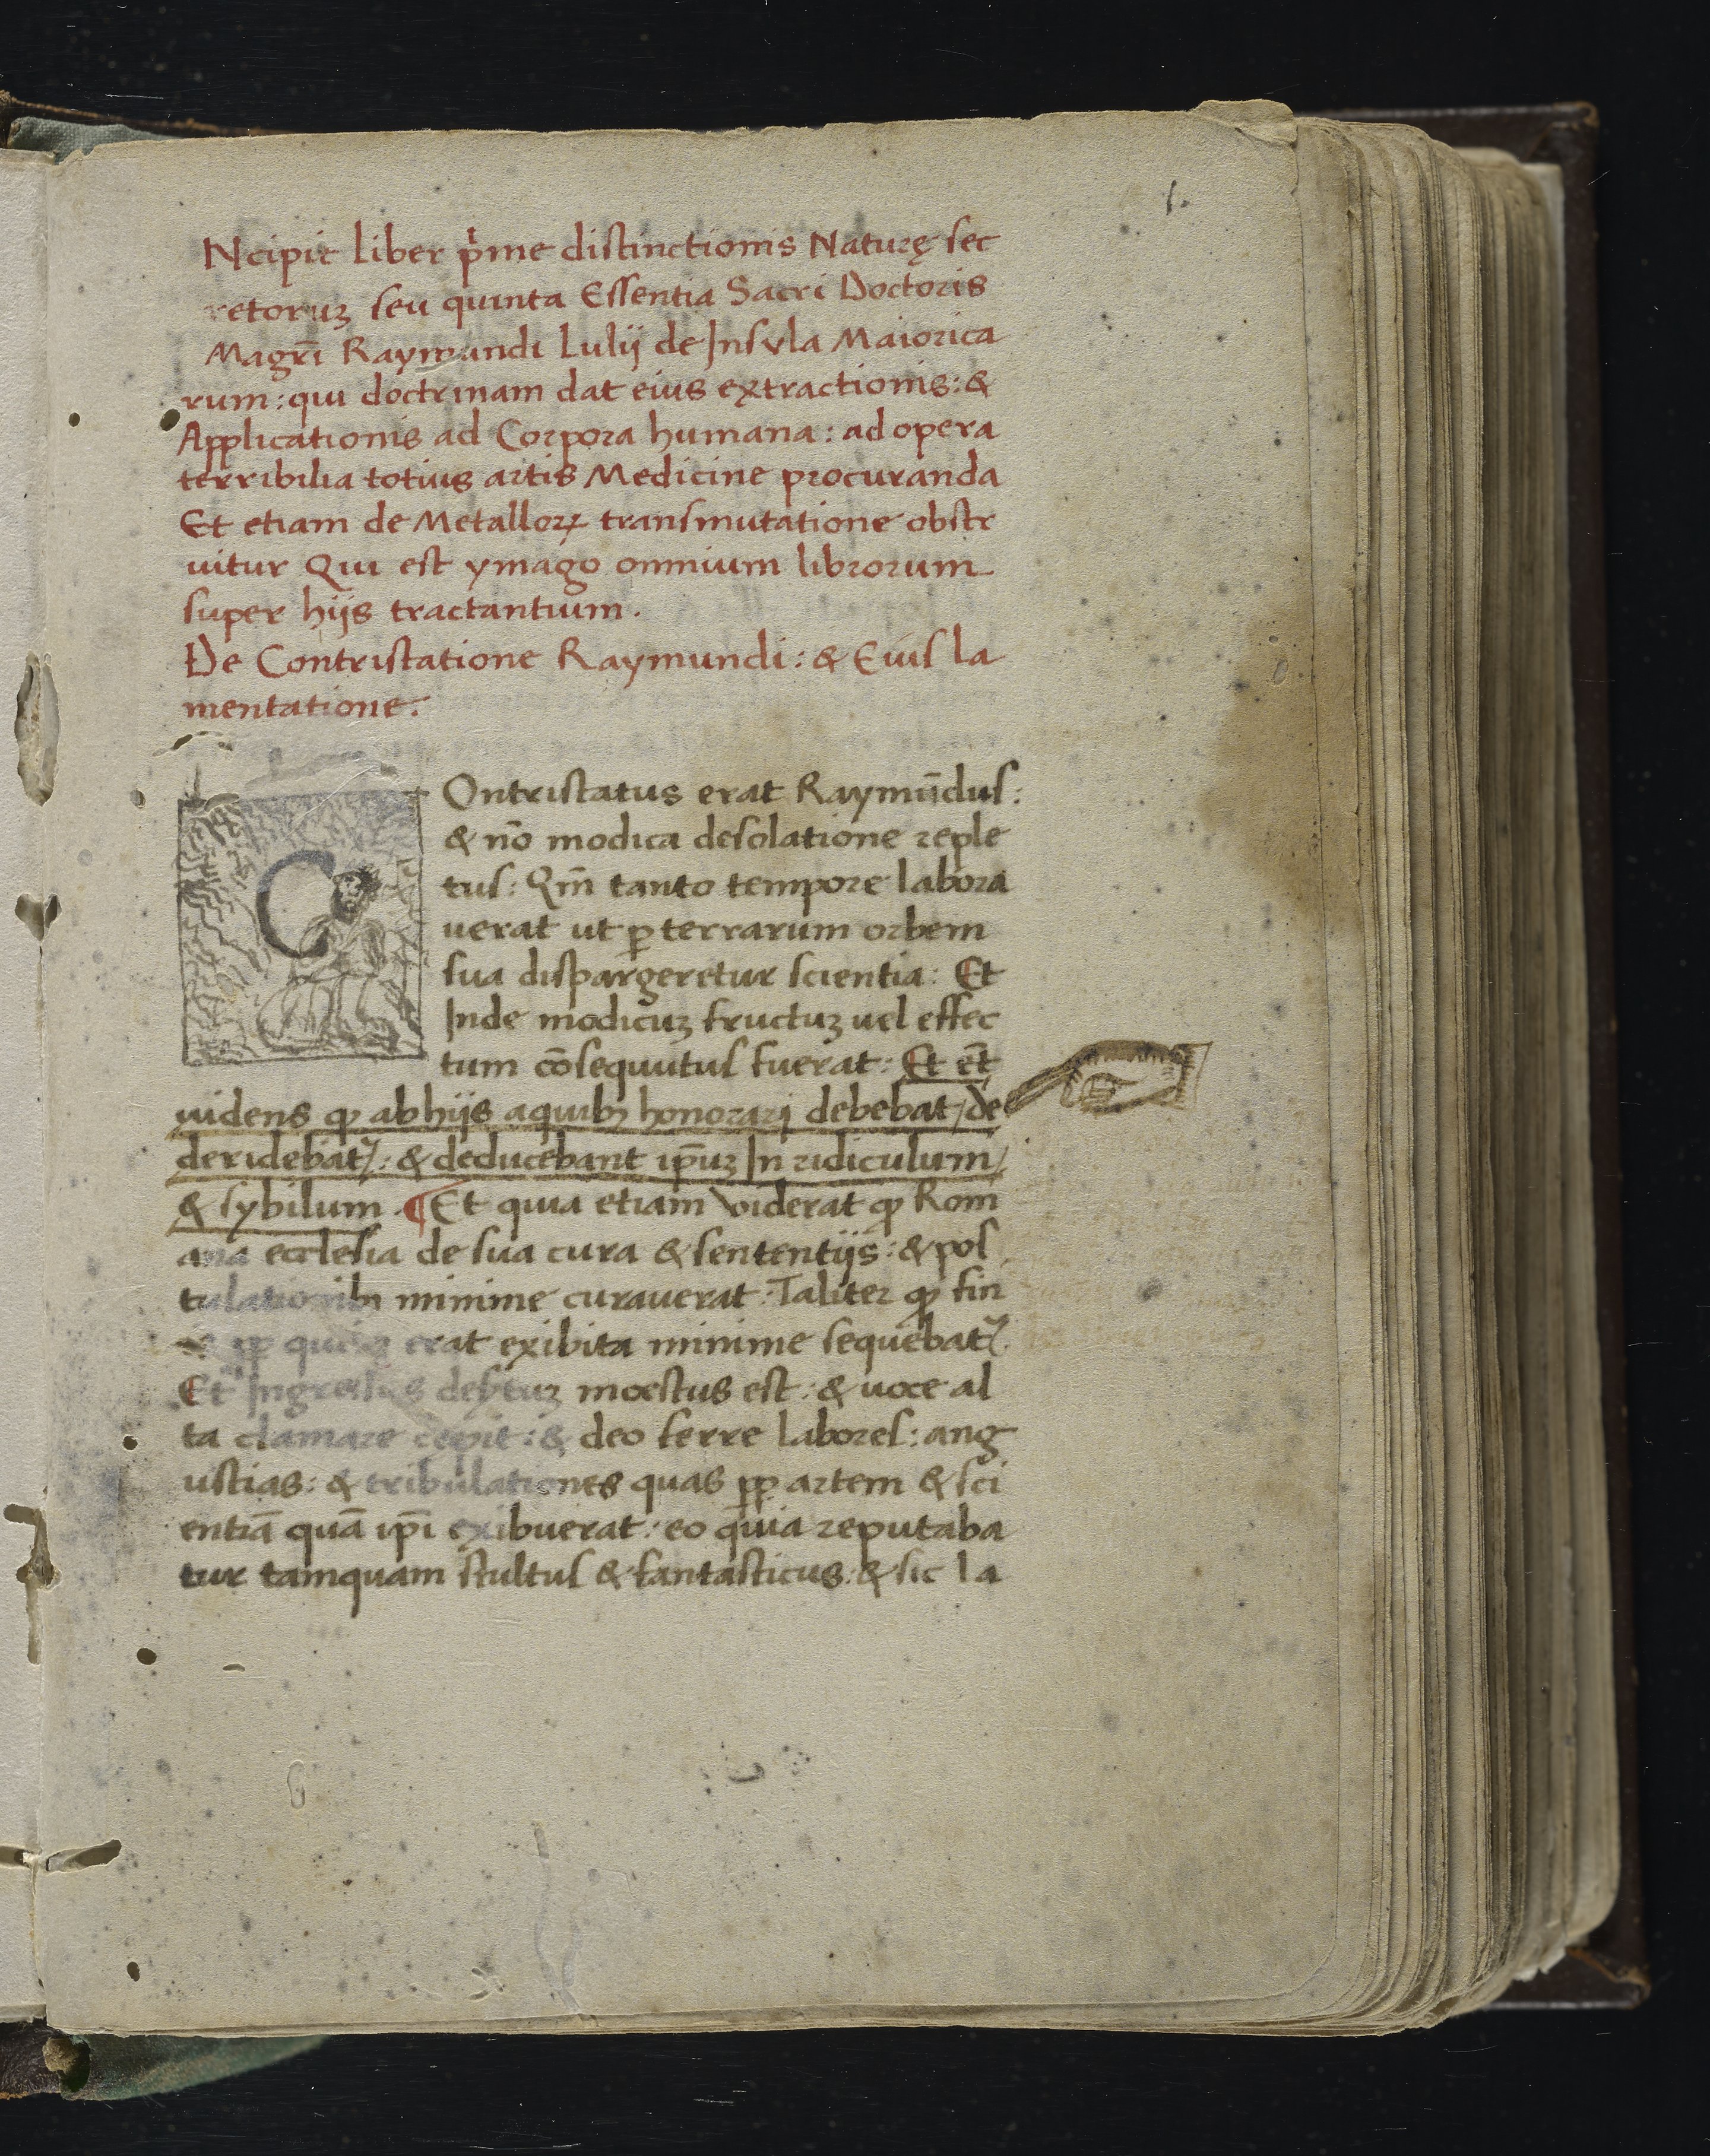 1.
Ncipit liber p̄me distinctionis Naturę sec
retoruꝫ seu quinta Essentia Sacri Doctoris
Magr̄i Raymundi Lulij de Insula Maiorica
rum: qui doctrinam dat eius extractionis: &
Applicationis ad Corpora humana: ad opera
terribilia totius artis Medicine procuranda
Et etiam de Metalloꝝ transmutatione obstr
uitur Qui est ymago omnium librorum
super hijs tractantium.
De Contristatione Raymundi: & Eius la
mentatione.
C
Ontristatus erat Raymūdus:
& nō modica desolatione reple
tus: Qm̄ tanto tempore labora
uerat ut ꝑ terrarum orbem
sua dispargeretur scientia: Et
Inde modicuꝫ fructuꝫ uel effec
tum cōsequutus fuerat: Et et̄
uidens ꝙ ab hijs aquibꝫ honorarj debebat / de
deridebat᷑: & deducebant ip̄uꝫ In ridiculum /
& sybilum. ¶ Et quia etiam viderat ꝙ Rom
ana ecclesia de sua cura & sententijs: & pos
tulationibꝫ minime curauerat: Taliter ꝙ fin
erat exibita minime sequebat᷑.
Et Ingressus moestus est: & uoce al
ta clamare cepit: & deo ferre labores: ang
ustias: & tribulationes quas ꝓp artem & sci
entiā quā ip̄i exibuerat: eo quia reputaba
tur tamquam stultus & fantasticus: & sic la